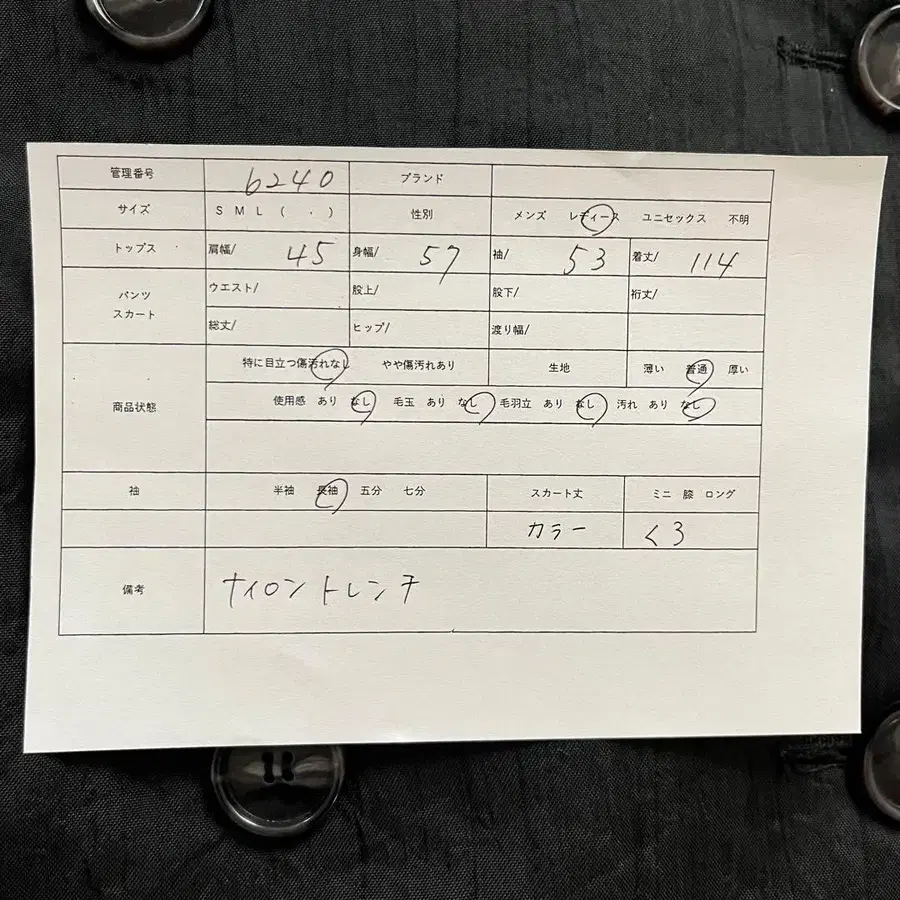 管理番号 6240 ブランド
サイズ S M L ( . ) 性別 メンズ レディース ユニセックス 不明
トップス 肩幅/ 45 身幅/ 57 袖/ 53 着丈/ 114
パンツ スカート ウエスト/ 股上/ 股下/ 裄丈/
総丈/ ヒップ/ 渡り幅/
商品状態 特に目立つ傷汚れなし やや傷汚れあり 生地 薄い 普通 厚い
使用感 あり なし 毛玉 あり なし 毛羽立 あり なし 汚れ あり なし
袖 半袖 長袖 五分 七分 スカート丈 ミニ 膝 ロング
カラー くろ
備考 ナイロントレンチ